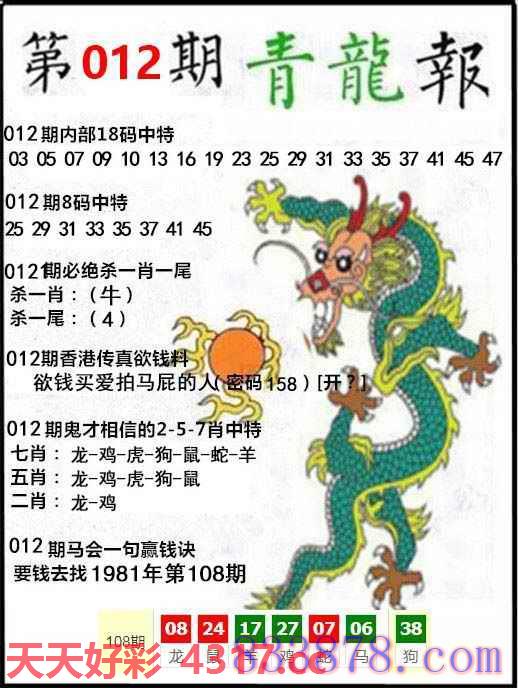 第012期青龍報
012期内部18码中特
03 05 07 09 10 13 16 19 23 25 29 31 33 35 37 41 45 47
012期8码中特
25 29 31 33 35 37 41 45
012期必绝杀一肖一尾
杀一肖：（牛）
杀一尾：（4）
012期香港传真欲钱料
欲钱买爱拍马屁的人（密码158）[开？]
012期鬼才相信的2-5-7肖中特
七肖：龙-鸡-虎-狗-鼠-蛇-羊
五肖：龙-鸡-虎-狗-鼠
二肖：龙-鸡
012期马会一句赢钱诀
要钱去找1981年第108期
108期 08 24 17 27 07 06 38
龙 鼠 羊 鸡 蛇 马 狗
天天好彩 4317.cc
838878.com